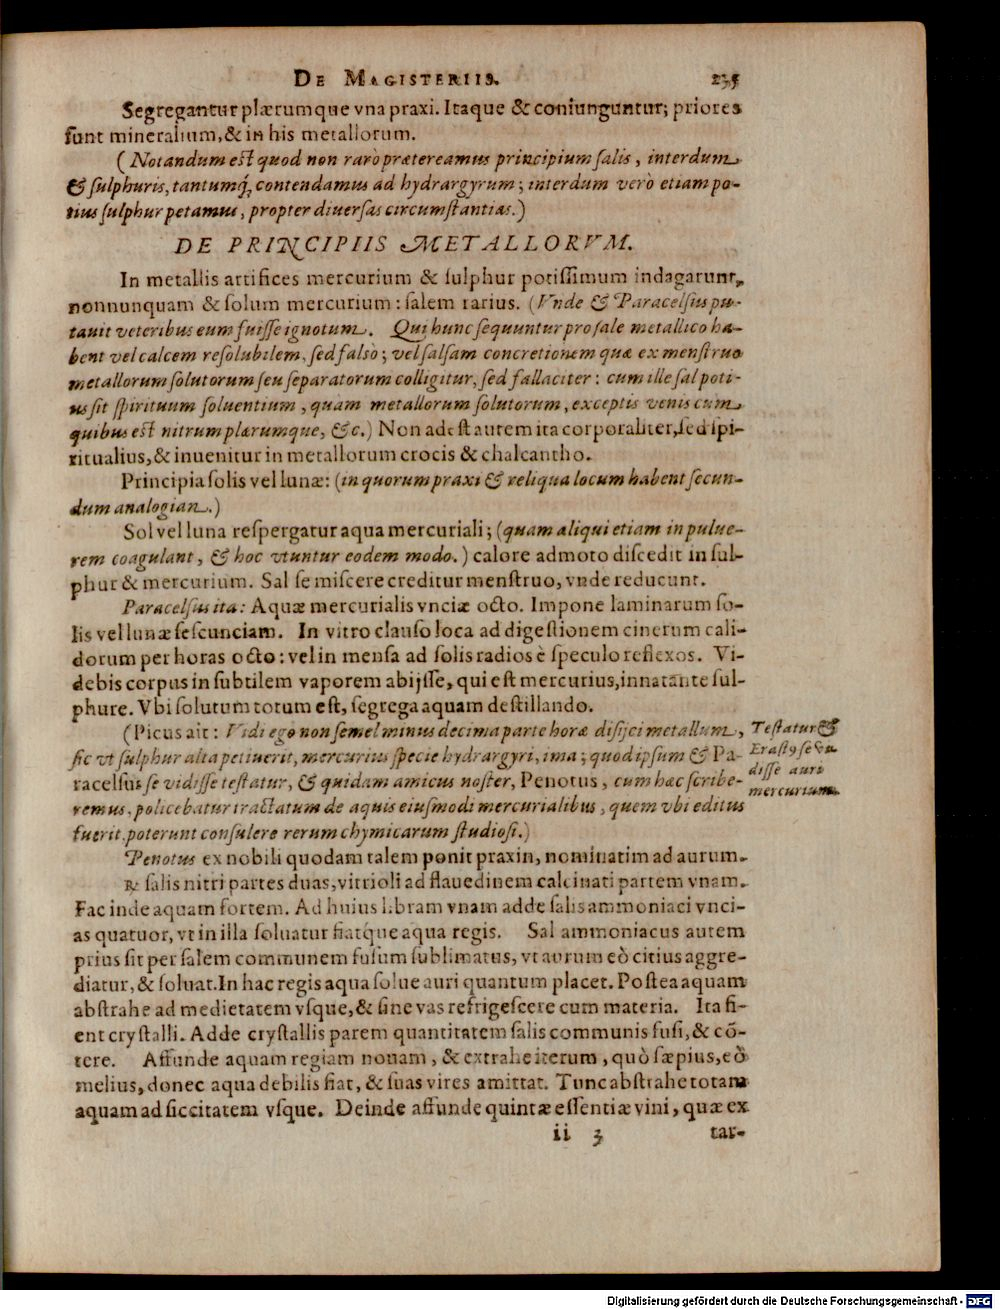 DE MAGISTERIIS. 235
Segregantur plærumque vna praxi. Itaque & coniunguntur; priores
sunt mineralium, & in his metallorum.
(Notandum est quod non rarò prætereamus principium salis, interdum
& sulphuris, tantumq́; contendamus ad hydrargyrum; interdum verò etiam po-
tius sulphur petamus, propter diuersas circumstantias.)
DE PRINCIPIIS METALLORVM.
In metallis artifices mercurium & sulphur potissimum indagarunt,
nonnunquam & solum mercurium: salem rarius. (Vnde & Paracelsius pu-
tauit veteribus eum fuisse ignotum. Qui hunc sequuntur pro sale metallico ha-
bent vel calcem resolubilem, sed falsò; vel salsam concretionem quæ ex menstruo
metallorum solutorum seu separatorum colligitur, sed fallaciter: cum ille sal poti-
us sit spirituum soluentium, quàm metallorum solutorum, exceptis venis cum
quibus est nitrum plærumque, &c.) Non adest autem ita corporaliter, sed spi-
ritualius, & inuenitur in metallorum crocis & chalcantho.
Principia solis vel lunæ: (in quorum praxi & reliqua locum habent secun-
dum analogian.)
Sol vel luna respergatur aqua mercuriali; (quam aliqui etiam in pulue-
rem coagulant, & hoc vtuntur eodem modo.) calore admoto discedit in sul-
phur & mercurium. Sal se miscere creditur menstruo, vnde reducunt.
Paracelsus ita: Aquæ mercurialis vnciæ octo. Impone laminarum so-
lis vel lunæ sescunciam. In vitro clauso loca ad digestionem cinerum cali-
dorum per horas octo: vel in mensa ad solis radios è speculo reflexos. Vi-
debis corpus in subtilem vaporem abijsse, qui est mercurius, innatante sul-
phure. Vbi solutum totum est, segrega aquam destillando.
(Picus ait: Vidi ego non semel minus decima parte horæ disijci metallum,
sic vt sulphur alta petiuerit, mercurius specie hydrargyri, ima; quod ipsum & Pa-
racelsus se vidisse testatur, & quidam amicus noster, Penotus, cum hæc scribe-
remus, policebatur tractatum de aquis eiusmodi mercurialibus, quem vbi editus
fuerit, poterunt consulere rerum chymicarum studiosi.)
Testatur &
Erast9 se vi-
disse auri
mercurium.
Penotus ex nobili quodam talem ponit praxin, nominatim ad aurum.
℞ salis nitri partes duas, vitrioli ad flauedinem calcinati partem vnam.
Fac inde aquam fortem. Ad huius libram vnam adde salis ammoniaci vnci-
as quatuor, vt in illa soluatur fiatque aqua regis. Sal ammoniacus autem
prius sit per salem communem fusum sublimatus, vt aurum eò citius aggre-
diatur, & soluat. In hac regis aqua solue auri quantum placet. Postea aquam
abstrahe ad medietatem vsque, & sine vas refrigescere cum materia. Ita fi-
ent crystalli. Adde crystallis parem quantitatem salis communis fusi, & cō-
tere. Affunde aquam regiam nouam, & extrahe iterum, quò sæpius, eò
melius, donec aqua debilis fiat, & suas vires amittat. Tunc abstrahe totam
aquam ad siccitatem vsque. Deinde affunde quintæ essentiæ vini, quæ ex
ii 3 tar-
Digitalisierung gefördert durch die Deutsche Forschungsgemeinschaft - DFG